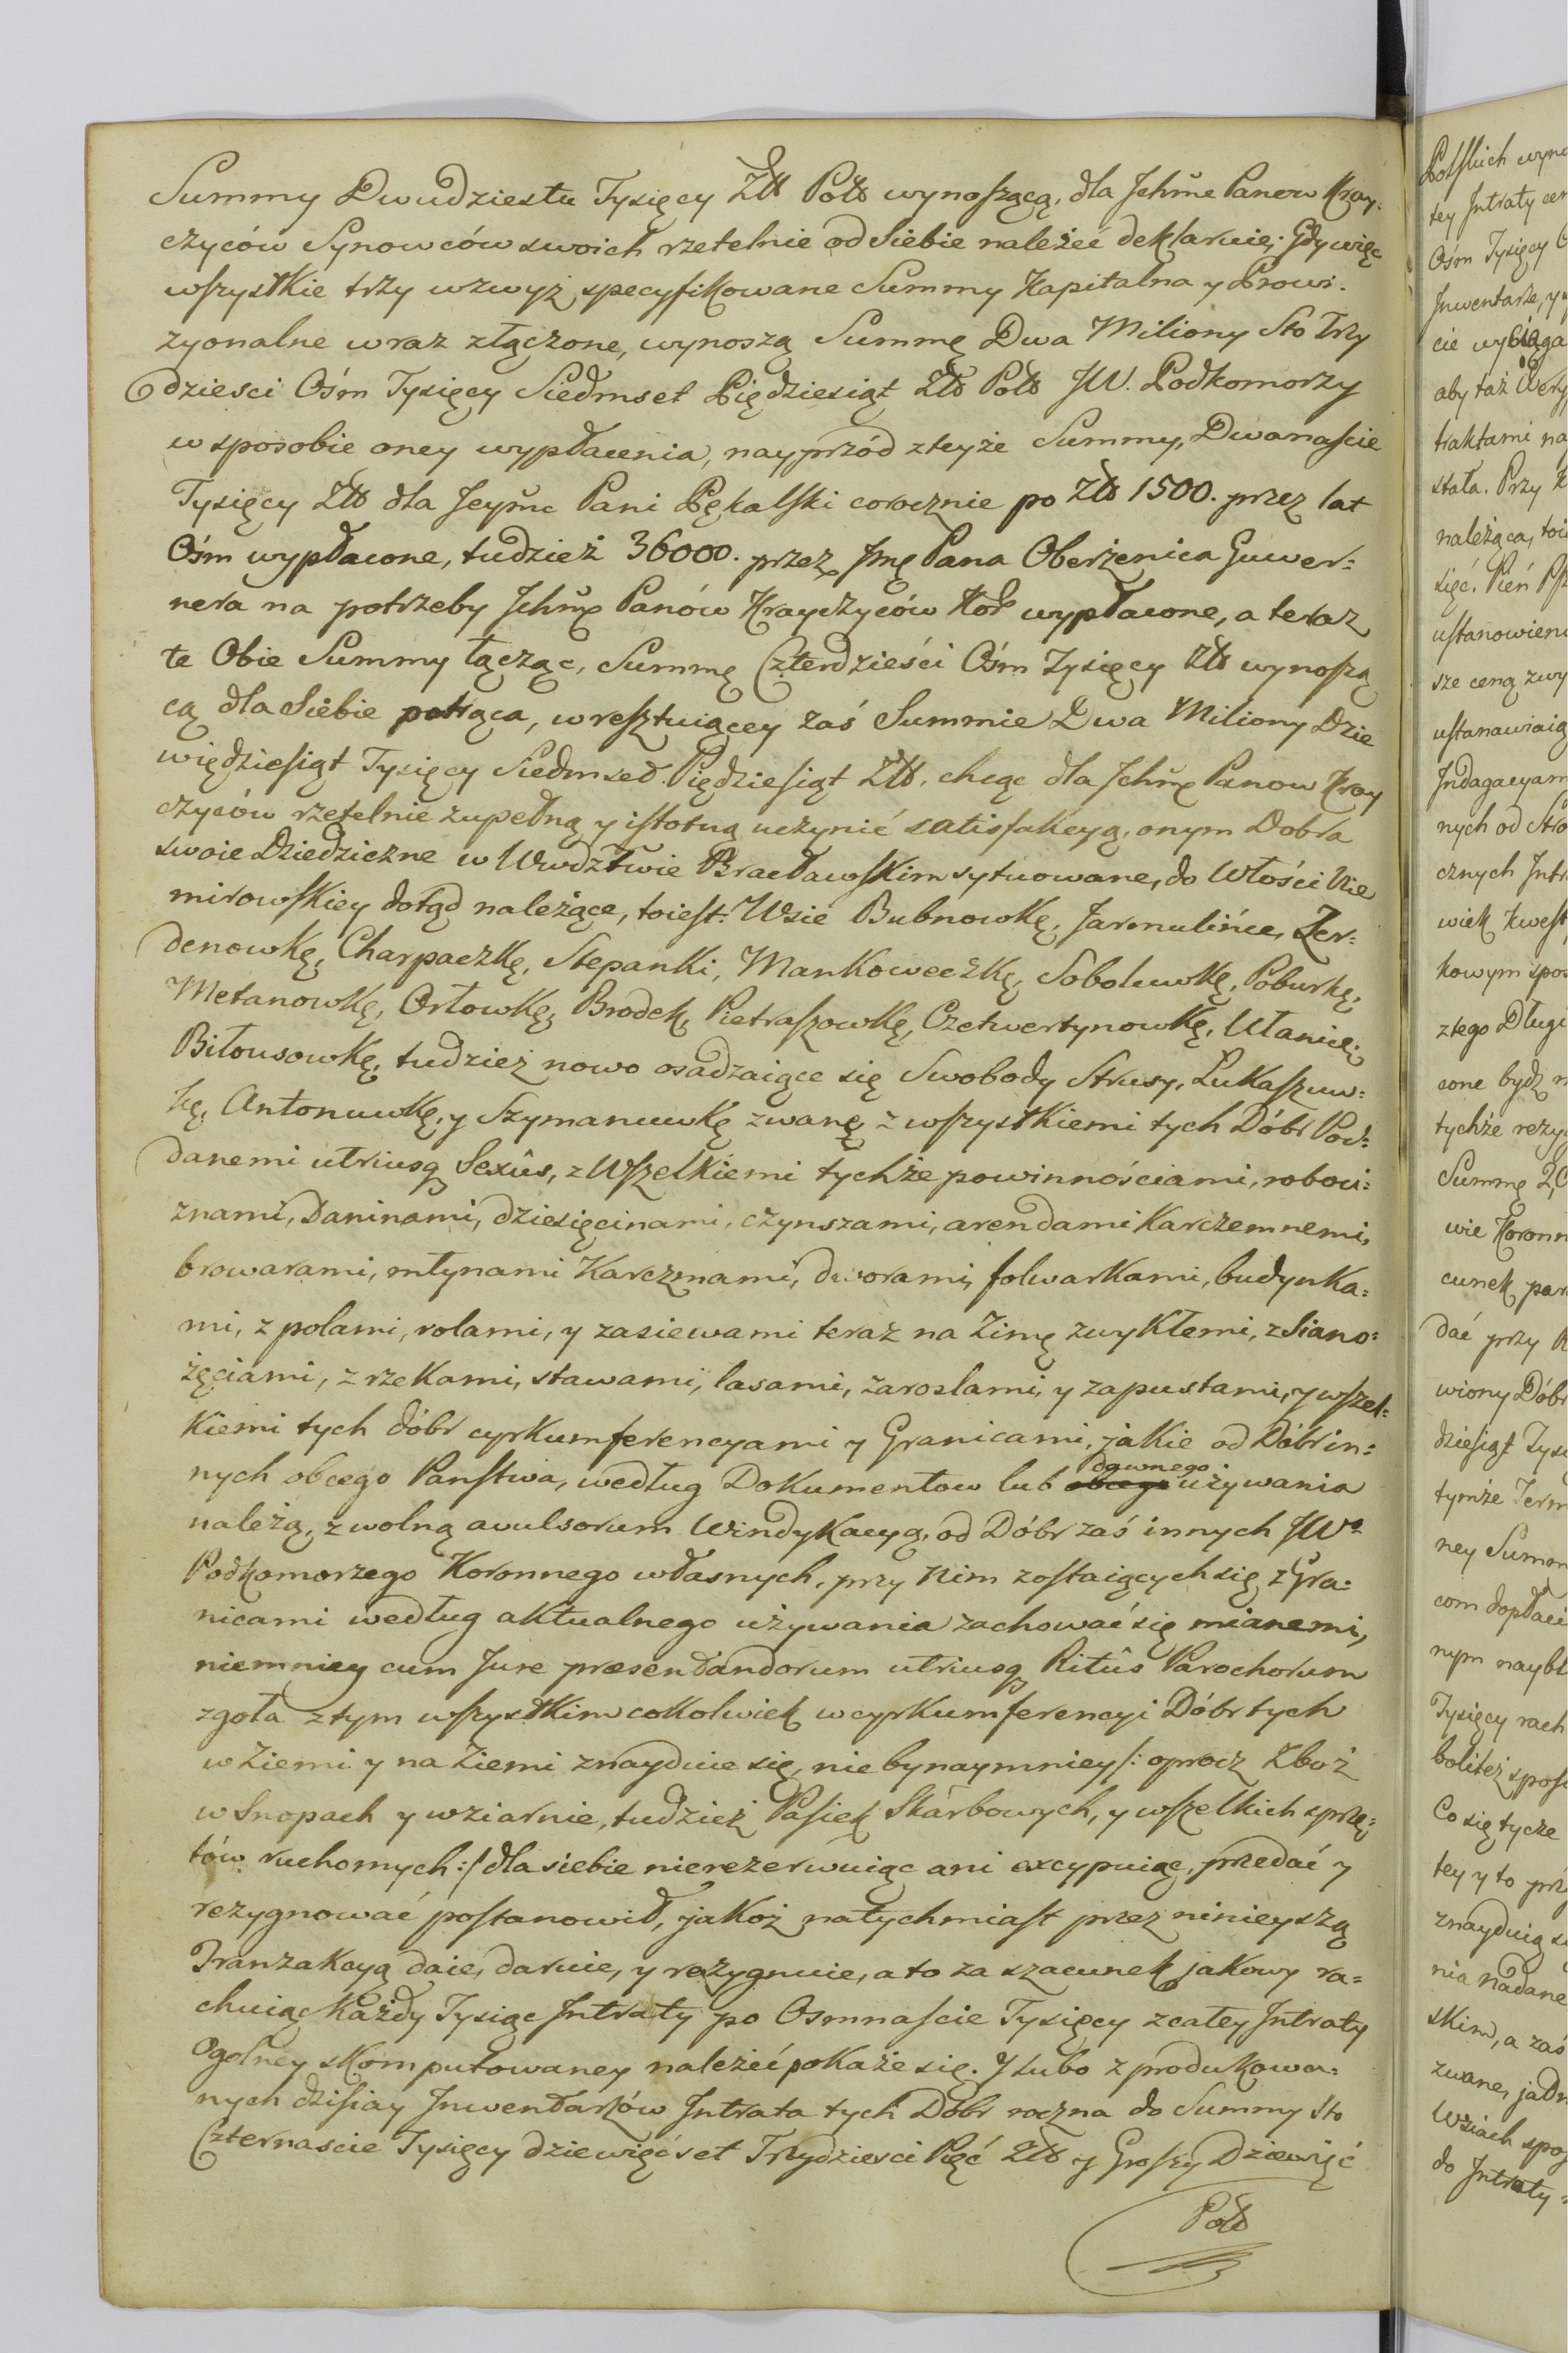 Summy Dwudziestu Tysięcy Złł Polł wynoszącą, dla Jchmć Panow Kray:
czyców Synowców swoich rzetelnie od Siebie należeć deklaruie; Gdy więc
wszystkie trzy wzwyż specyfikowane Summy Kapitalna y Prowi:
zyonalne wraz złączone, wynoszą Summę Dwa Miliony Sto Trzy
dziesci Ośm Tysięcy Siedmset Piędziesiąt Złł Polł JW. Podkomorzy
w sposobie oney wypłacenia, nayprzód z teyże Summy, Dwanaście
Tysięcy Złł dla Jeymć Pani Pękalski corocznie po Złł 1500. przez lat
Ośm wypłacone, tudzież 36000. przez Jmę Pana Oberżenica Guwer:
nera na potrzeby Jchmć Panów Krayczyców Kor wypłacone, a teraz
te Obie Summy łącząc, Summę Czterdzieści Ośm Tysięcy Złł wynoszą
cą dla Siebie potrąca, w resztuiącey zaś Summie Dwa Miliony Dzie
więdziesiąt Tysięcy Siedmset Piędziesiąt Złł. chcąc dla Jchmć Panow Kray
czyców rzetelnie zupełną y istotną uczynić satisfakcyą, onym Dobra
swoie Dziedziczne w Wwdztwie Bracławskim sytuowane, do Włości Nie
mirowskiey dotąd należące, toiest: Wsie Bubnowkę, Jarmulińce, Zer:
denowkę, Charpaczkę, Stepanki, Mankoweczkę, Sobolowkę, Poburkę,
Metanowkę, Orłowkę, Brodek, Pietraszowkę, Czetwertynowkę, Ułanię,
Biłousowkę, tudzież nowo osadzaiące się Swobody Strusy, Łukaszuw:
kę, Antonuwkę, y Szymanuwkę zwanę, z wszystkiemi tych Dóbr Pod:
danemi utriusq Sexûs, z Wszelkiemi tychże powinnościami, roboci:
znami, Daninami, dziesięcinami, czynszami, arendami Karczemnemi,
browarami, młynami Karczmami, dworami, folwarkami, budynka:
mi, z polami, rolami, y zasiewami teraz na Zimę zwykłemi, z Siano:
żęciami, z rzekami, stawami, lasami, zaroslami, y zapustami, y wszel:
kiemi tych dóbr cyrkumferencyami y Granicami, jakie od Dóbr in:
nych obcego Państwa, według Dokumentow lub obcego dawnego używania
należą, z wolną avulsorum Windykacyą, od Dóbr zaś innych JWo
Podkomorzego Koronnego własnych, przy Nim zostaiących się z Gra:
nicami według aktualnego używania zachować się mianemi,
niemniey cum Jure præsentandorum utriusq Ritûs Parochorum
zgoła z tym wszystkim cokolwiek w cyrkumferencyi Dóbr tych
w Ziemi y na Ziemi znayduie się, nie bynaymniey /: oprocz Zboż
w Snopach y w ziarnie, tudzież Pasiek Skarbowych, y wszelkich sprzę:
tów ruchomych :/ dla siebie nierezerwuiąc ani excypuiąc, przedać y
rezygnować postanowił, jakoż natychmiast przez ninieyszą
Tranzakcyą daie, daruie, y rezygnuie, a to za szacunek jakowy ra:
chuiąc Każdy Tysiąc Intraty po Osmnaście Tysięcy z całey Intraty
Ogolney skomputowaney należeć pokaże się. J lubo z produkowa:
nych dzisiay Jnwentarzów Jntrata tych Dóbr roczna do Summy Sto
Czternascie Tysięcy dziewięćset Trzydziesci Pięć Złł y Groszy Dziewięć
Polł
Polskich
tey Jntraty
Ośm Tysięcy
Jnwentarze, y
cie wyciąga
aby taż
traktami na
stała. Przy
należąca,
sięć. Pień
sze ceną
nych od
cznych
wiek kwest
kowym
z tego Długu
cone bydź
tychże
Summę
wie Koronn
cunek
dać przy
wiony Dóbr
dziesiąt
tymże Term
ney Summ
com dopłaci
nym naybl
Tysięcy rach
Co się tycze
tey y to
znayduią
nia nadane
skim, a zaś
zwane,
Wsiach
do Jntraty